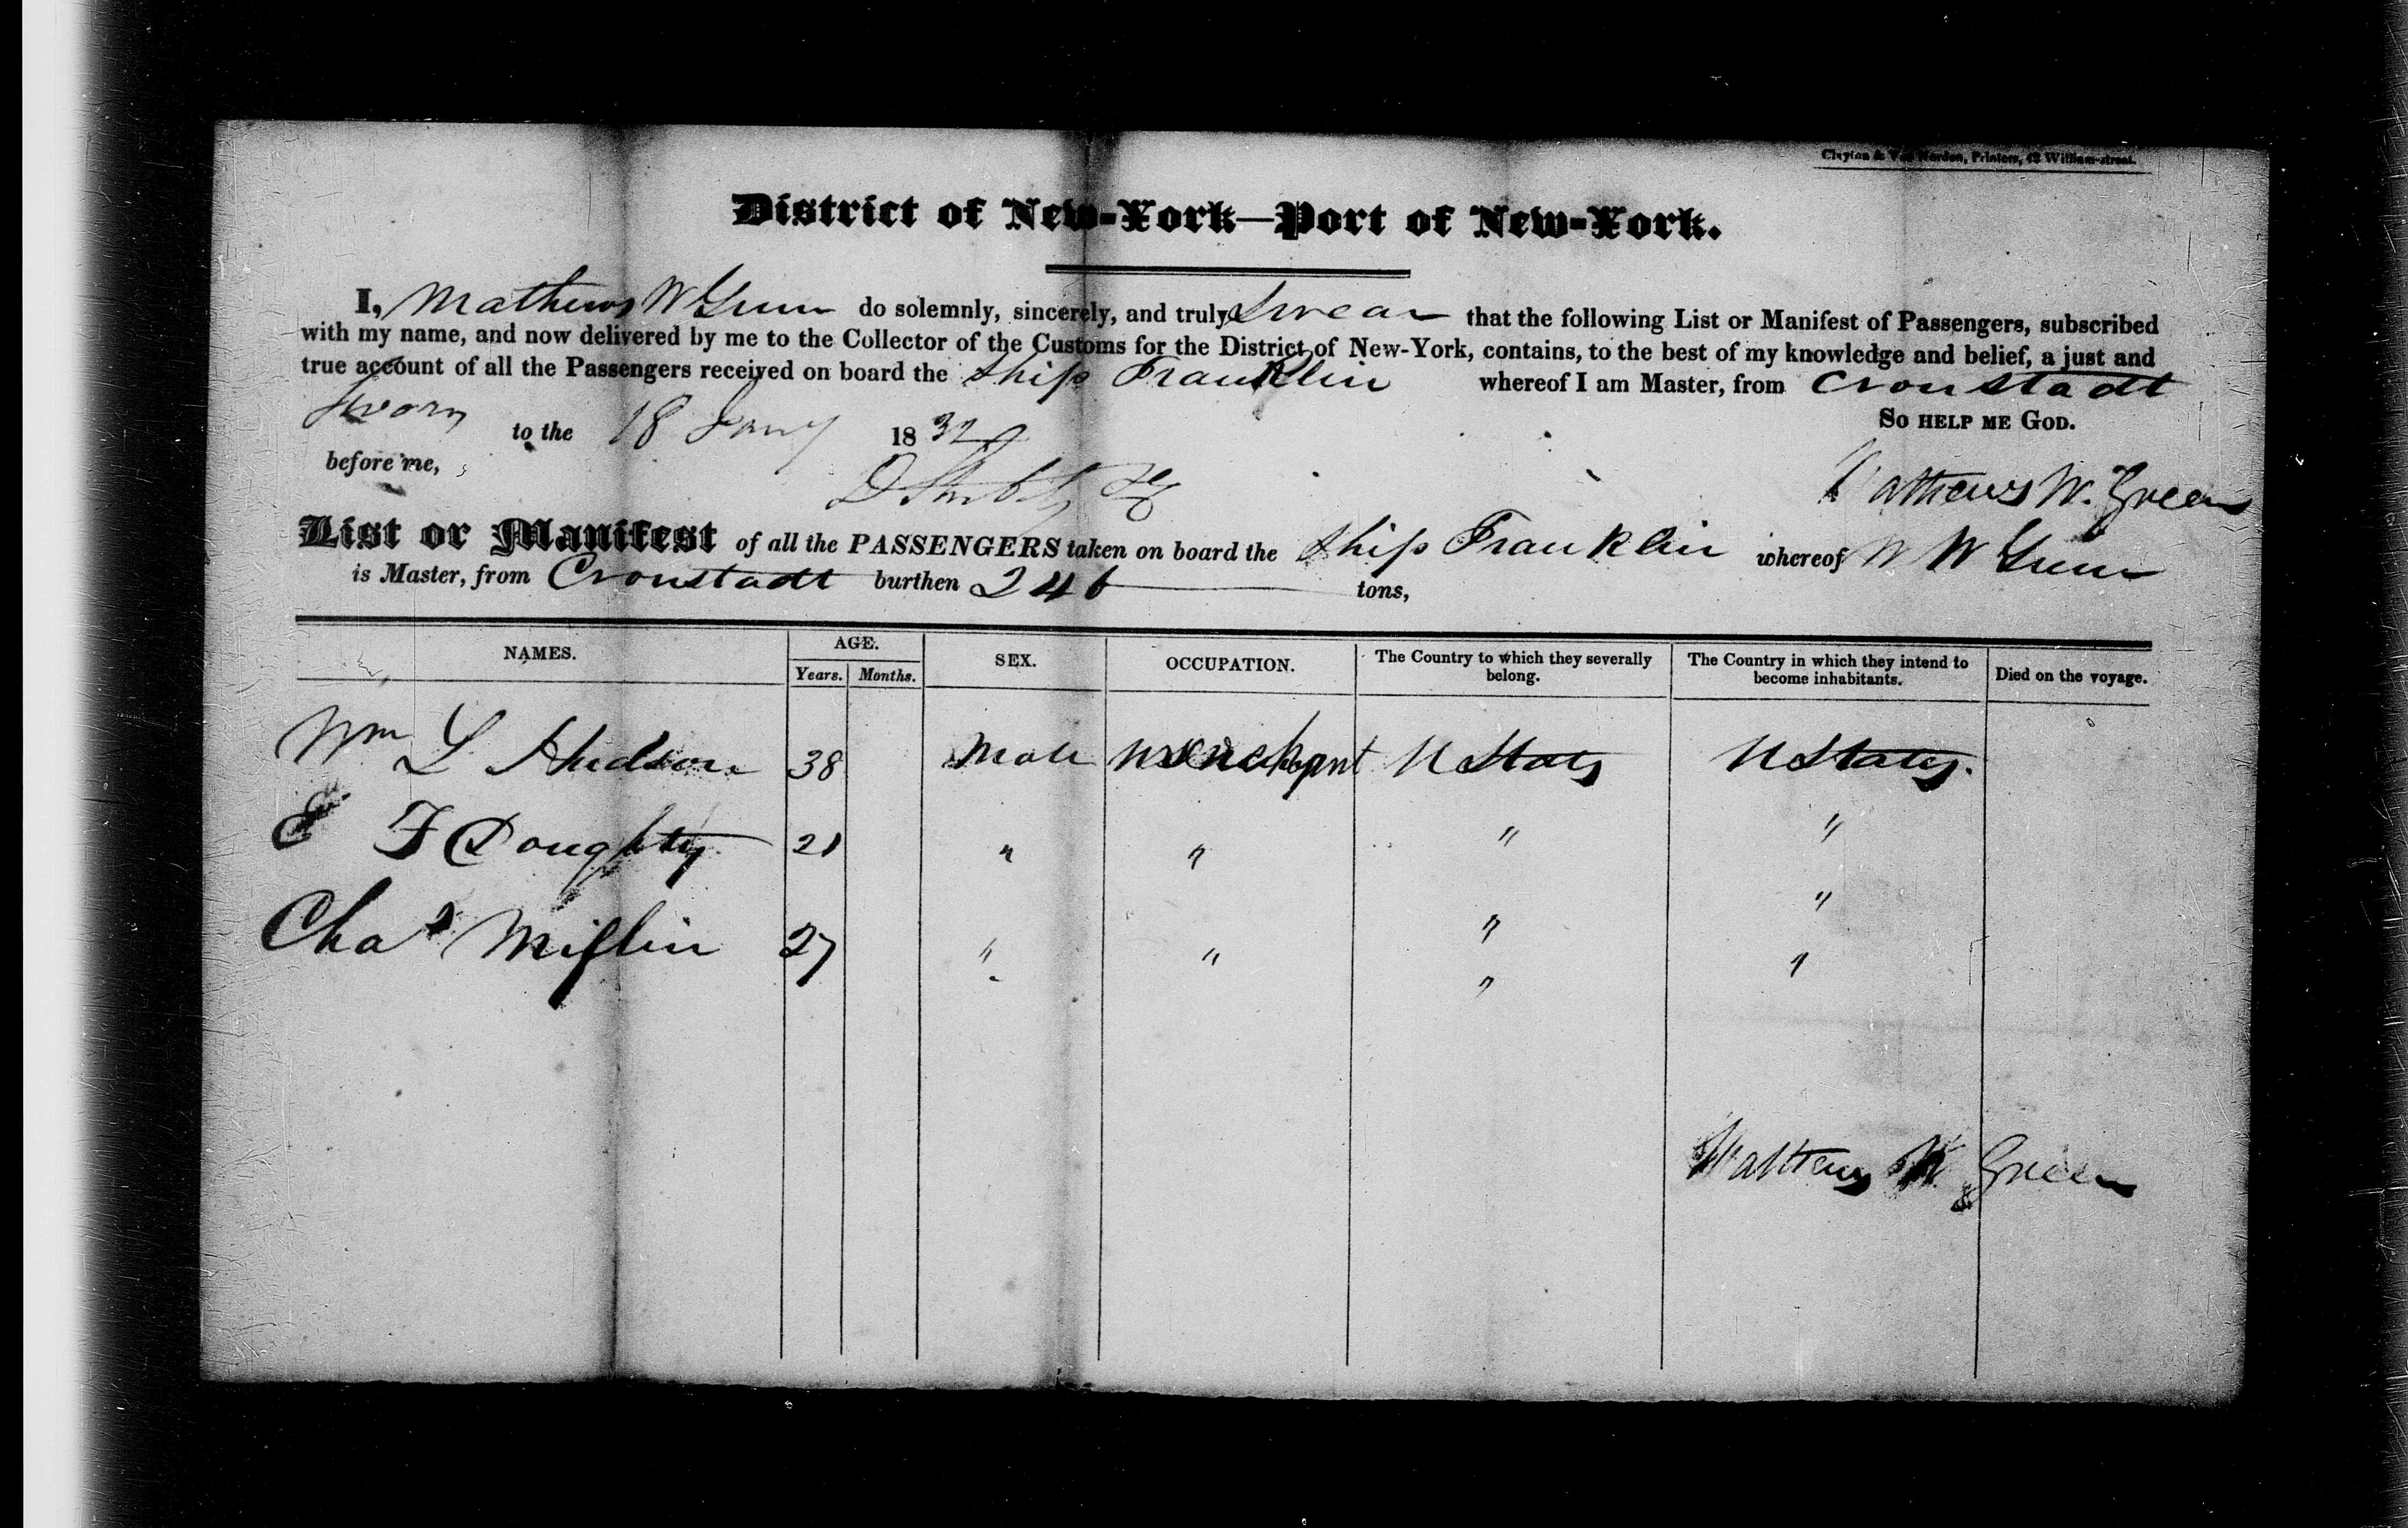 Clayton & Van Norden, Printers, 42 William-street.
District of New-York—Port of New-York.
I, Mathews W Green do solemnly, sincerely, and truly Swear that the following List or Manifest of Passengers, subscribed
with my name, and now delivered by me to the Collector of the Customs for the District of New-York, contains, to the best of my knowledge and belief, a just and
true account of all the Passengers received on board the Ship Franklin whereof I am Master, from Cronstadt
Sworn to the 18 Jany 1832 So help me God.
before me,
Mathews W. Green
List or Manifest of all the PASSENGERS taken on board the Ship Franklin whereof M W Green
is Master, from Cronstadt burthen 246 tons,
NAMES. AGE. SEX. OCCUPATION. The Country to which they severally belong. The Country in which they intend to become inhabitants. Died on the voyage.
Years. Months.
Wm L Hudson 38 Male Merchant U States U States.
E F Doughty 21 " " " "
"
Chas Miflin 27 " " " "
"
Matthews W Green